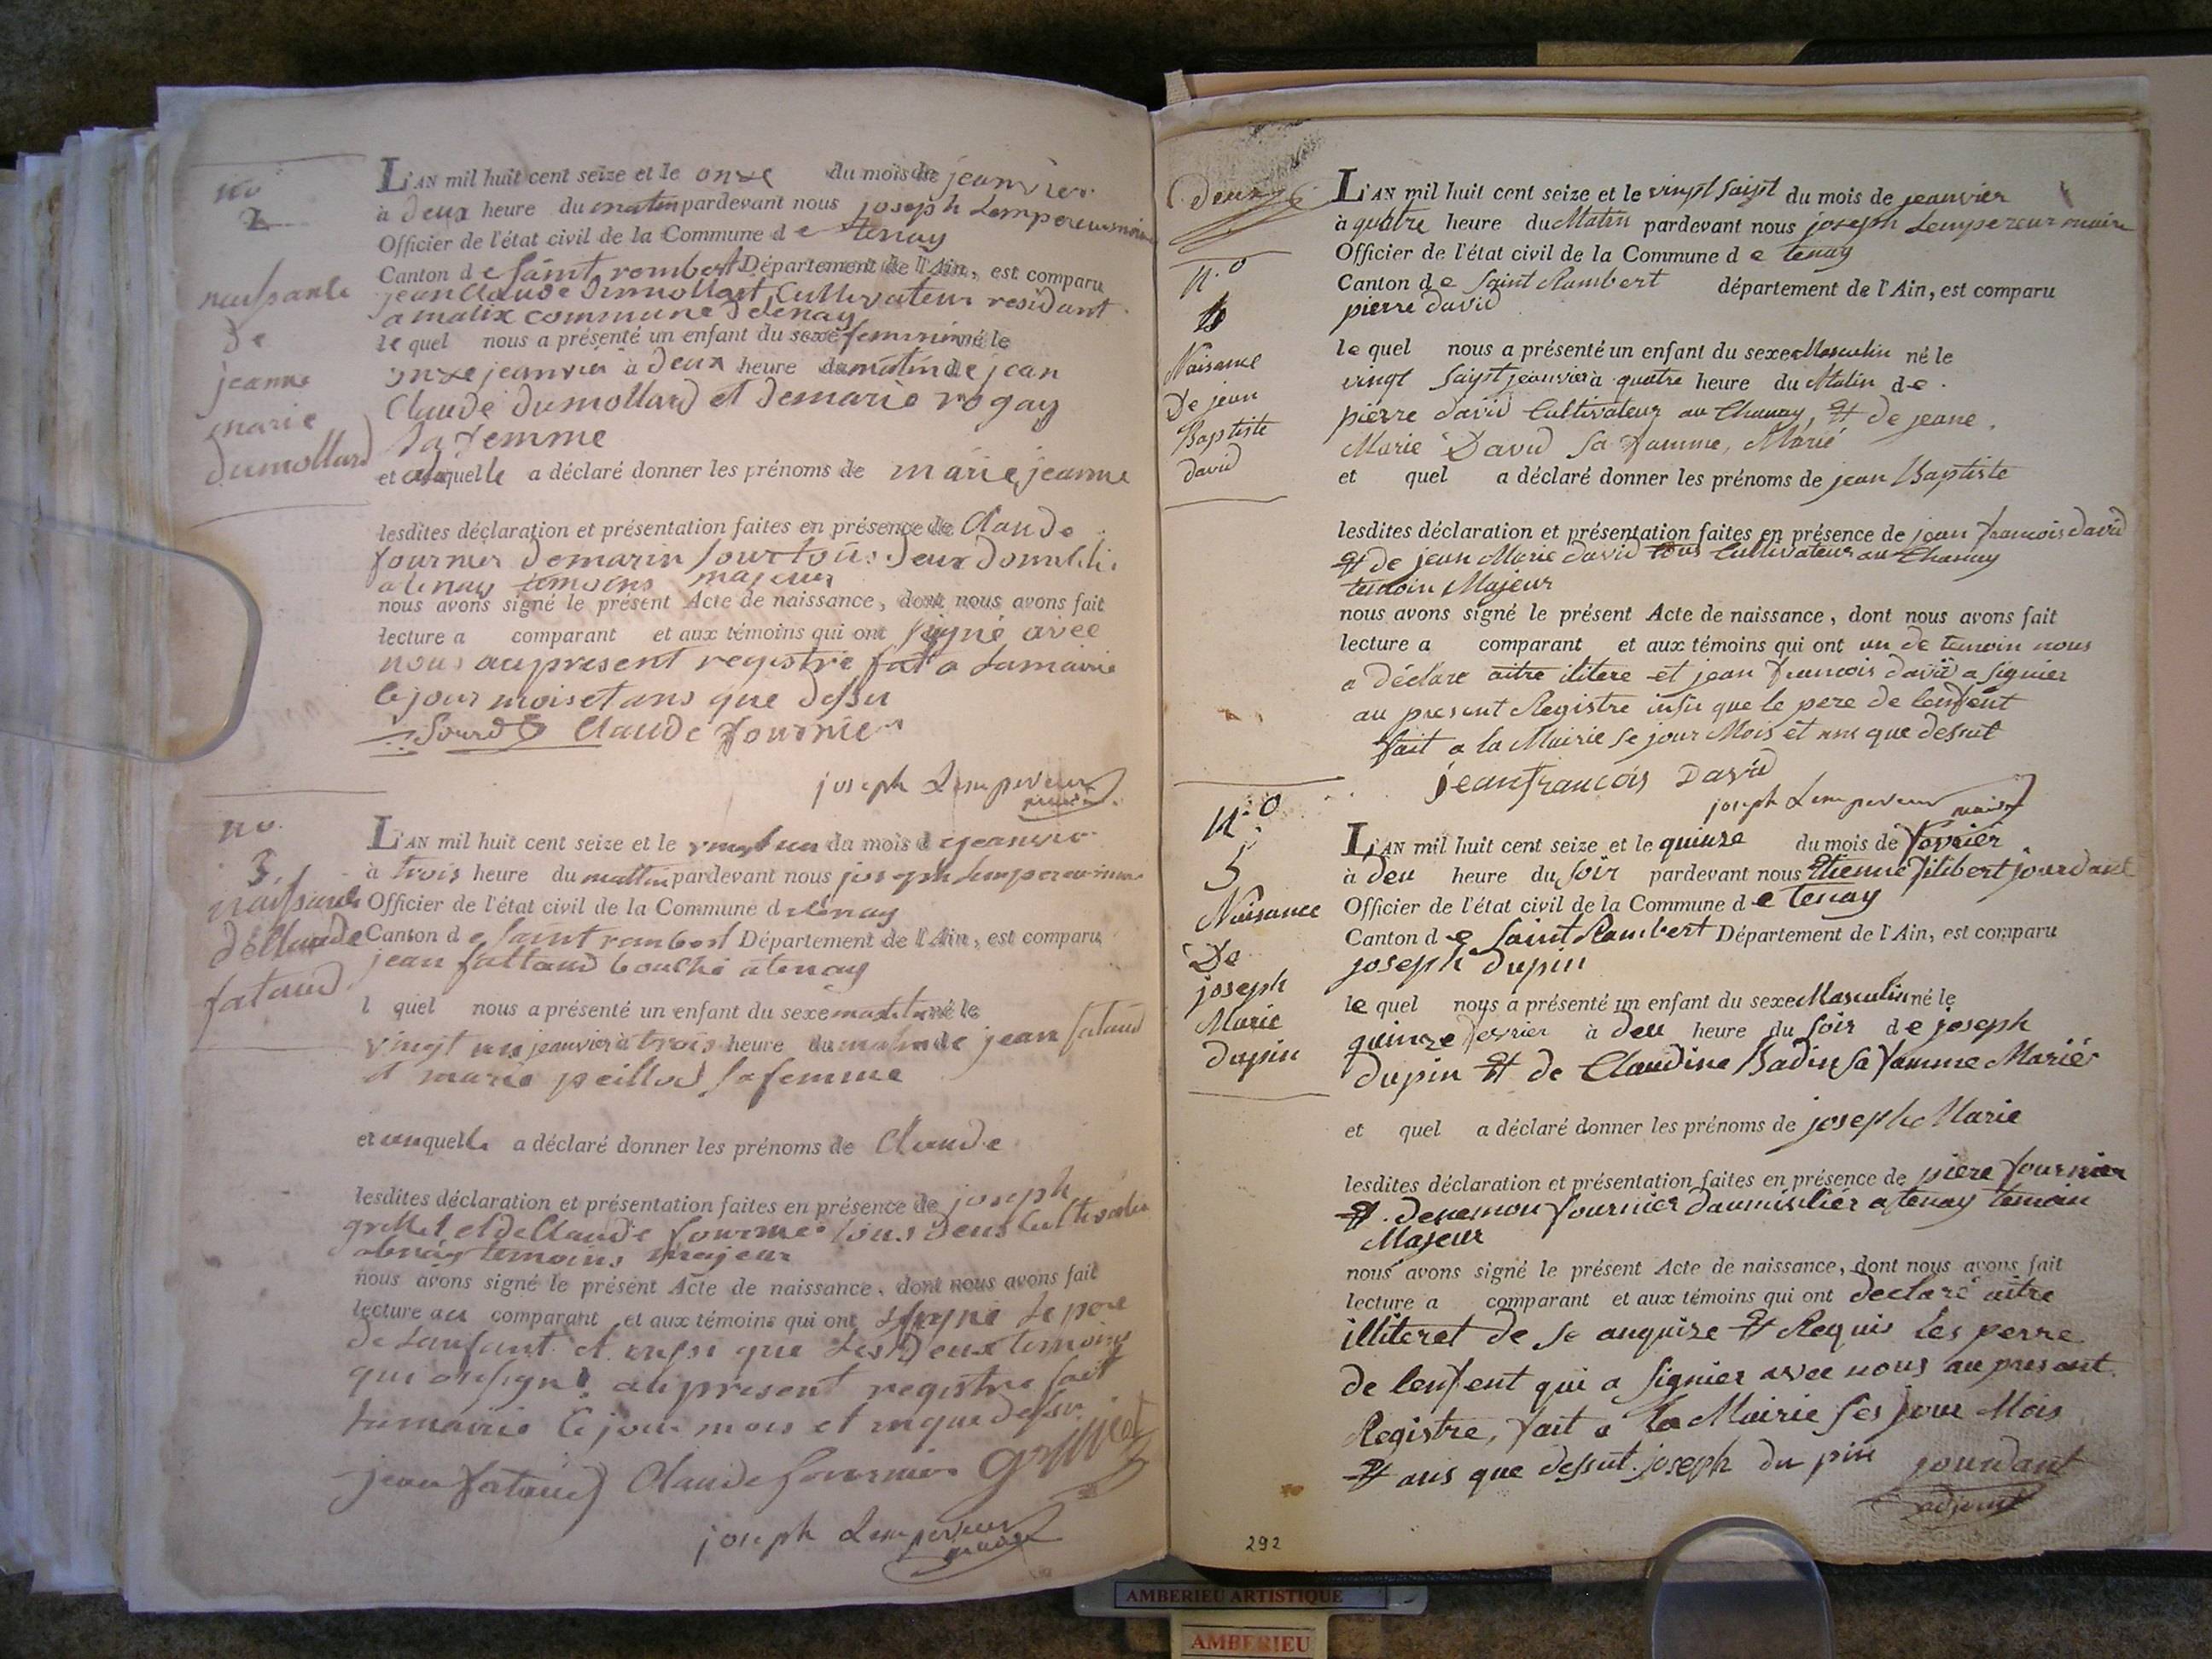 no
2
naissanse
De
jeanne
marie
dumollard
L'AN mil huit cent seize et le onze du mois de jeanvier
à deux heure du matin pardevant nous joseph Lempereur maire
Officier de l'état civil de la Commune de tenay
Canton de saint rombert Département de l'Ain, est comparu
jean Claude Dumollart, Cultivateur residant
a malix commune de tenay
lequel nous a présenté un enfant du sexe feminin né le
onze jeanvier à deux heure du matin de jean
Claude dumollard et demarie rogay
sa femme
et quelle a déclaré donner les prénoms de marie jeanne
lesdites déclaration et présentation faites en présence de Claude
fournier demarin sourd tous deux
a tenay temoins majeur
nous avons signé le présent Acte de naissance, dont nous avons fait
lecture a comparant et aux témoins qui ont signé avec
nous au present registre fait a Lamairie
le jour mois et ans que dessu
Sourd Claude fournier
joseph Lempereur
maire
no.
3
naissance
de Claude
fataud
L'AN mil huit cent seize et le vingt un du mois de jeanvier
à trois heure du mattin pardevant nous joseph Lempereur
Officier de l'état civil de la Commune de tenay
Canton de saint rambert Département de l'Ain, est comparu
jean fattaud bouché a tenay
l quel nous a présenté un enfant du sexe né le
vingt un jeanvier à trois heure du matin de jean fataud
et marie peillod sa femme
et quelle a déclaré donner les prénoms de Claude
lesdites déclaration et présentation faites en présence de joseph
grillet et de Claude fournier tous deus Cultivateur
a tenay temoins majeur
nous avons signé le présent Acte de naissance, dont nous avons fait
lecture au comparant et aux témoins qui ont signé Le pere
de Lanfant et ensi que Les Deux temoins
qui on signé au present registre fait
Lamairie le jour mois et an que dessu
jean fataud Claude fournier grillet
joseph Lempereur
maire
Deux
N.o
4
Naisance
De jean
Baptiste
david
L'AN mil huit cent seize et le vingt saipt du mois de jeanvier
à quatre heure du Matin pardevant nous joseph Lempereur maire
Officier de l'état civil de la Commune de tenay
Canton de Saint Rambert département de l'Ain, est comparu
pierre david
lequel nous a présenté un enfant du sexe Masculin né le
vingt saipt jeanvier à quatre heure du Matin de
pierre david Cultivateur au Chanay, Et de jeane
Marie David sa famme, Marié
et quel a déclaré donner les prénoms de jean Baptiste
lesdites déclaration et présentation faites en présence de jean francois david
Et de jean Marie david tous Cultivateur au Chanay
temoin Majeur
nous avons signé le présent Acte de naissance, dont nous avons fait
lecture a comparant et aux témoins qui ont un de temoin nous
a déclare aitre ilitere et jean francois david a signier
au present Registre insu que le pere de lenfent
fait a la Mairie se jour Mois et ans que dessut
jean francois David
joseph Lempereur maire
N.o
5
Naisance
De
joseph
Marie
dupin
L'AN mil huit cent seize et le quinze du mois de fevrier
à deu heure du soir pardevant nous Etienne filibert jourdant
Officier de l'état civil de la Commune de tenay
Canton de Saint Rambert Département de l'Ain, est comparu
joseph dupin
lequel nous a présenté un enfant du sexe Masculin né le
quinze fevrier à deu heure du soir de joseph
dupin Et de Claudine Badin sa famme Mariér
et quel a déclaré donner les prénoms de joseph Marie
lesdites déclaration et présentation faites en présence de piere fournier
Et. fournier daumisiliér a tenay temoin
Majeur
nous avons signé le présent Acte de naissance, dont nous avons fait
lecture a comparant et aux témoins qui ont declaré aitre
illiteret de se anquize Et Requis Les perre
de lenfent qui a signier avec nous au presant
Registre, fait a la Mairie ses jour Mois
Et ans que dessut. joseph du pin jourdant
adjoint
292
AMBERIEU ARTISTIQUE
AMBERIEU